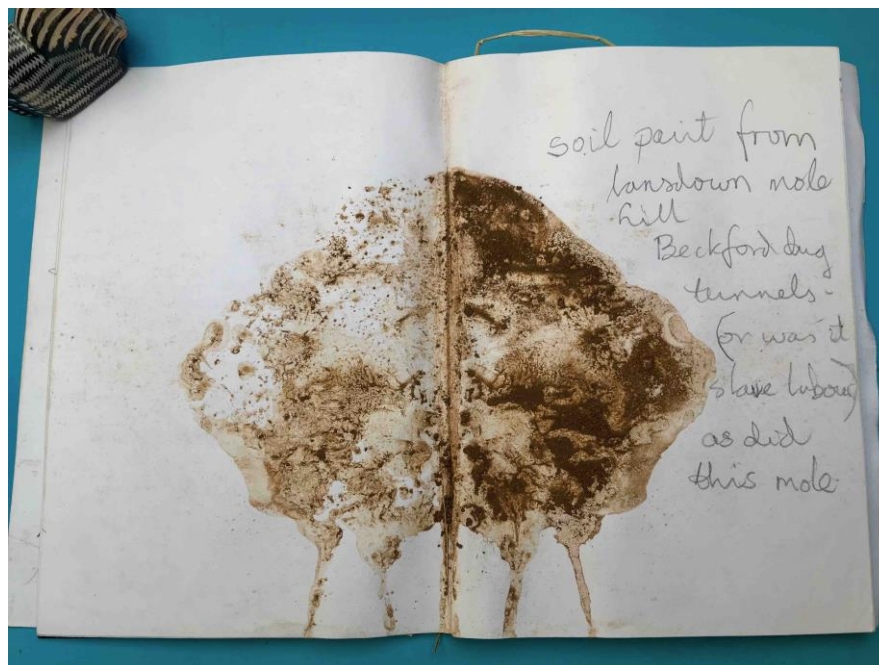 soil paint from
lansdown mole
hill
Beckford dug
tunnels-
(or was it
slave labour)
as did
this mole